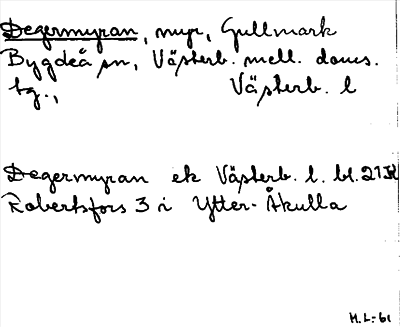 Degermyran, myr, Gullmark
Bygdeå sn, Västerb. mell. doms.
tg., Västerb. l
Degermyran ek Västerb. l. bl. 21K
Robertsfors 3 i Ytter-Åkulla
H.L.-61